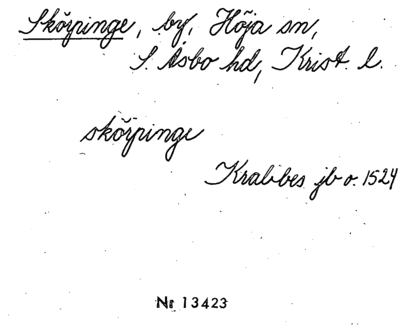 Skörpinge, by, Höja sn,
S. Åsbo hd, Krist. l.
skörpinge
Krabbes jb o. 1524
Nr 13423